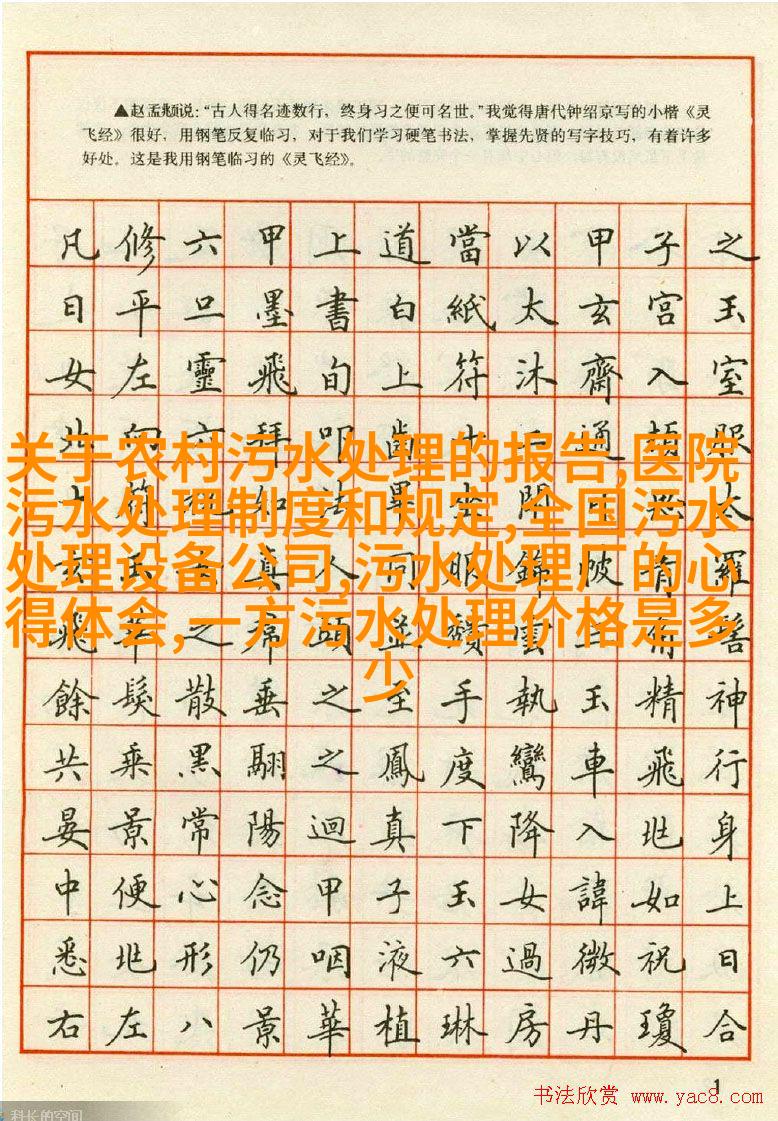 ▲赵孟頫说:“古人得名迹数行,终身习之便可名世。”我觉得唐代钟绍京写的小楷《灵
飞经》很好,用钢笔反复临习,对于我们学习硬笔书法,掌握先贤的写字技巧,有着许多
好处。这是我用钢笔临习的《灵飞经》。
凡修六甲上道當以甲子之
日平旦墨書白紙太玄宮玉
女左靈飛旬上符沐齋入室
北向六拜叩齒十二通頓服
關于农村污水处理的报告,医院
污水处理制度和规定,全国污水
处理设备公司,污水处理厂的心
得体会,一方污水处理价格是多
少
十符祝如法畢坐太
玄玉真人同服錦帔青羅
飛華之帬頭並頹雲髻
餘髮散垂之至手執玉精神
共乘黑翮之鳳度鸞車飛行
晏景常陽迴真下降入兆身
中便心念甲子玉女諱如上
悉兆形仍咽液六過微祝曰
右左八景華植琳房丹瓊合
1
书法欣赏 www.yac8.com
科长的空间